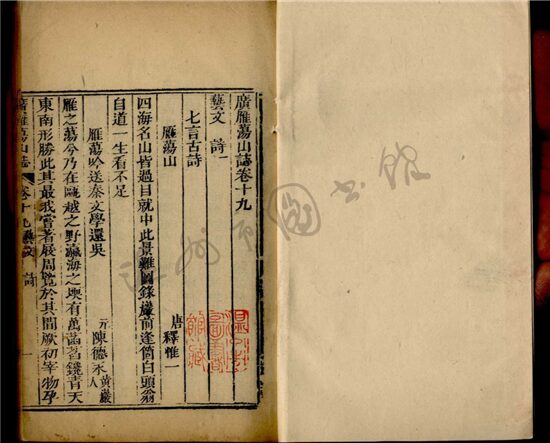 廣雁蕩山誌卷十九
藝文 詩一
七言古詩
雁蕩山 唐釋惟一
四海名山皆過目就中此景難圖錄巖前逢箇白頭翁
自道一生看不足
雁蕩吟送秦文學還吳 元陳德永黃巖人
雁之蕩兮乃在甌越之野瀛海之堧有萬菡萏鏡青天
東南形勝此其最我嘗著屐周覽於其間厥初宰物孕
廣雁蕩山誌 卷十九藝文 詩 一
溫州市圖書館藏
溫州市圖書館